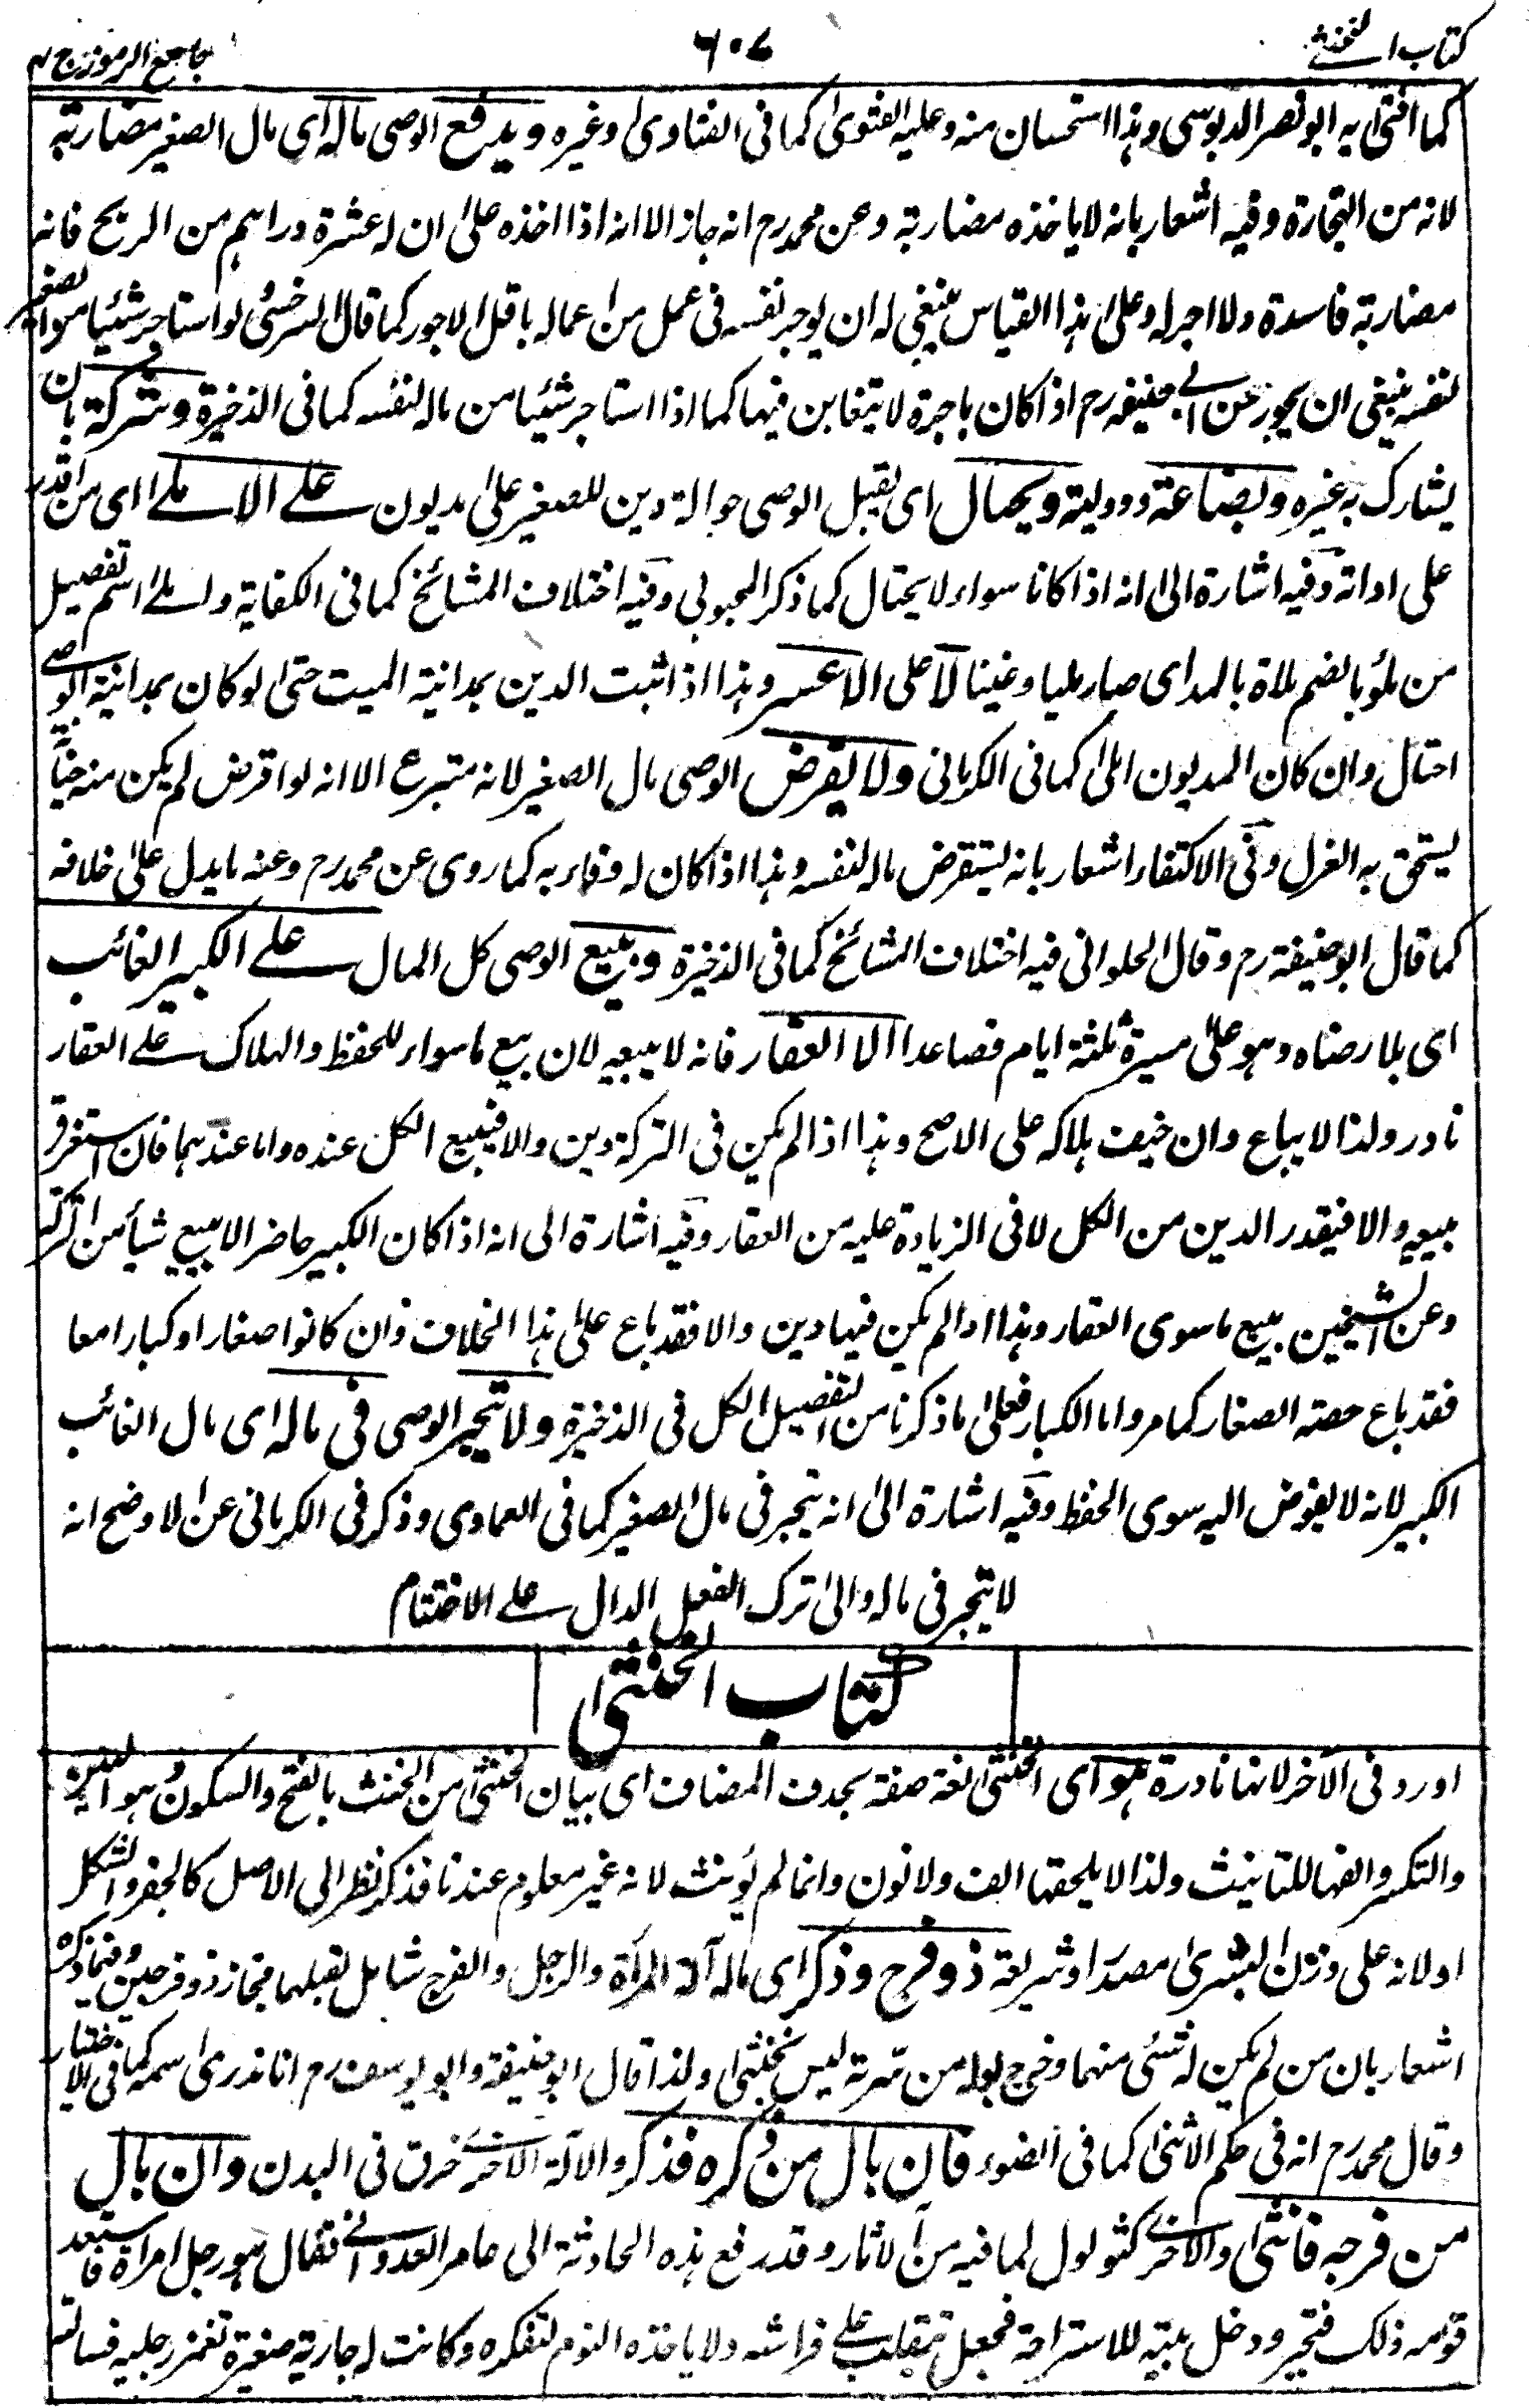 كتاب الخنثى
٦٠٧
جامع الرموز ج ٢
كما افتى به ابو نصر الدبوسى وهذا استحسان منه وعليه الفتوى كما فى الفتاوى وغيره ويدفع الوصى ماله اى مال الصغير مضاربة
لانه من التجارة وفيه اشعار بانه لا ياخذه مضاربة وعن محمد رح انه جاز الا انه اذا اخذه على ان له عشرة دراهم من الربح فانه
مضاربة فاسدة ولا اجر له وعلى هذا القياس ينبغى له ان يوجر نفسه فى عمل من اعماله باقل الاجور كما قال السرخسى لو استاجر شيئا من مال الصغير
لنفسه ينبغى ان يجوز عن ابى حنيفة رح اذا كان باجرة لا يتغابن فيها كما اذا استاجر شيئا من ماله لنفسه كما فى الذخيرة وشركة بان
يشارك به غيره وبضاعة ووديعة ويحتال اى يقبل الوصى حوالة دين للصغير على مديون على الاملى اى من اقدر
على ادائه وفيه اشارة الى انه اذا كانا سواء لا يحتال كما ذكر المحبوبى وفيه اختلاف المشائخ كما فى الكفاية واملى اسم تفضيل
من ملؤ بالضم ملاة بالمد اى صار مليا وغنيا لا على الاعسر وهذا اذا ثبت الدين بمداينة الميت حتى لو كان بمداينة الوصى
احتال وان كان المديون املى كما فى الكرمانى ولا يقرض الوصى مال الصغير لانه متبرع الا انه لو اقرض لم يكن منه خيانة
يستحق به العزل وفى الاكتفاء اشعار بانه يستقرض ماله لنفسه وهذا اذا كان له وفاء به كما روى عن محمد رح وعنه ما يدل على خلافه
كما قال ابو حنيفة رح وقال الحلوانى فيه اختلاف المشائخ كما فى الذخيرة ويبيع الوصى كل المال على الكبير الغائب
اى بلا رضاه وهو على مسيرة ثلثة ايام فصاعدا الا العقار فانه لا يبيعه لان بيع ما سواه للحفظ والهلاك على العقار
نادر ولذا لا يباع وان خيف هلاكه على الاصح وهذا اذا لم يكن فى التركة دين والا فيبيع الكل عنده واما عندهما فان استغرق
يبيعه والا فبقدر الدين من الكل لا فى الزيادة عليه من العقار وفيه اشارة الى انه اذا كان الكبير حاضرا لا يبيع شيأ من التركة
وعن الشيخين يبيع ما سوى العقار وهذا اذا لم يكن فيها دين والا فقد باع على هذا الخلاف وان كانوا صغارا وكبارا معا
فقد باع حصة الصغار كما مر واما الكبار فعلى ما ذكرنا من التفصيل الكل فى الذخيرة ولا يتجر الوصى فى ماله اى مال الغائب
الكبير لانه لا يفوض اليه سوى الحفظ وفيه اشارة الى انه يتجر فى مال الصغير كما فى العمادى وذكر فى الكرمانى عن الاوضح انه
لا يتجر فى ماله والى ترك الفعل الدال على الاختتام
كتاب الخنثى
اورد فى الآخر لانها نادرة هو اى الخنثى لغة صفة بحذف المضاف اى بيان الخنثى من الخنث بالفتح والسكون وهو اللين
والتكسر والفها للتانيث ولذا لا يلحقها الف ولا نون وانما لم يؤنث لانه غير معلوم عندنا فذكر نظرا الى الاصل كالجفر والشكل
او لانه على وزن البشرى مصدرا وشريعة ذو فرج وذكر اى ماله آلة المرأة والرجل والفرج شامل لقبلهما فمجاز ذو فرجين وفيما ذكره
اشعار بان من لم يكن له شئ منهما وخرج بوله من سرته ليس بخنثى ولذا قال ابو حنيفة وابو يوسف رح انا لا ندرى اسمه كما فى الاختيار
وقال محمد رح انه فى حكم الانثى كما فى الضوء فان بال من ذكره فذكر والآلة الاخرى خرق فى البدن وان بال
من فرجه فانثى والاخرى كثولول لما فيه من الآثار وقد رفع هذه الحادثة الى عامر العدوانى فقال هو رجل امراة فاستبعد
قومه ذلك فتحير ودخل بيته للاستراحة فجعل يتقلب على فراشه ولا ياخذه النوم لتفكره وكانت له جارية صغيرة تغمز رجليه فسالته